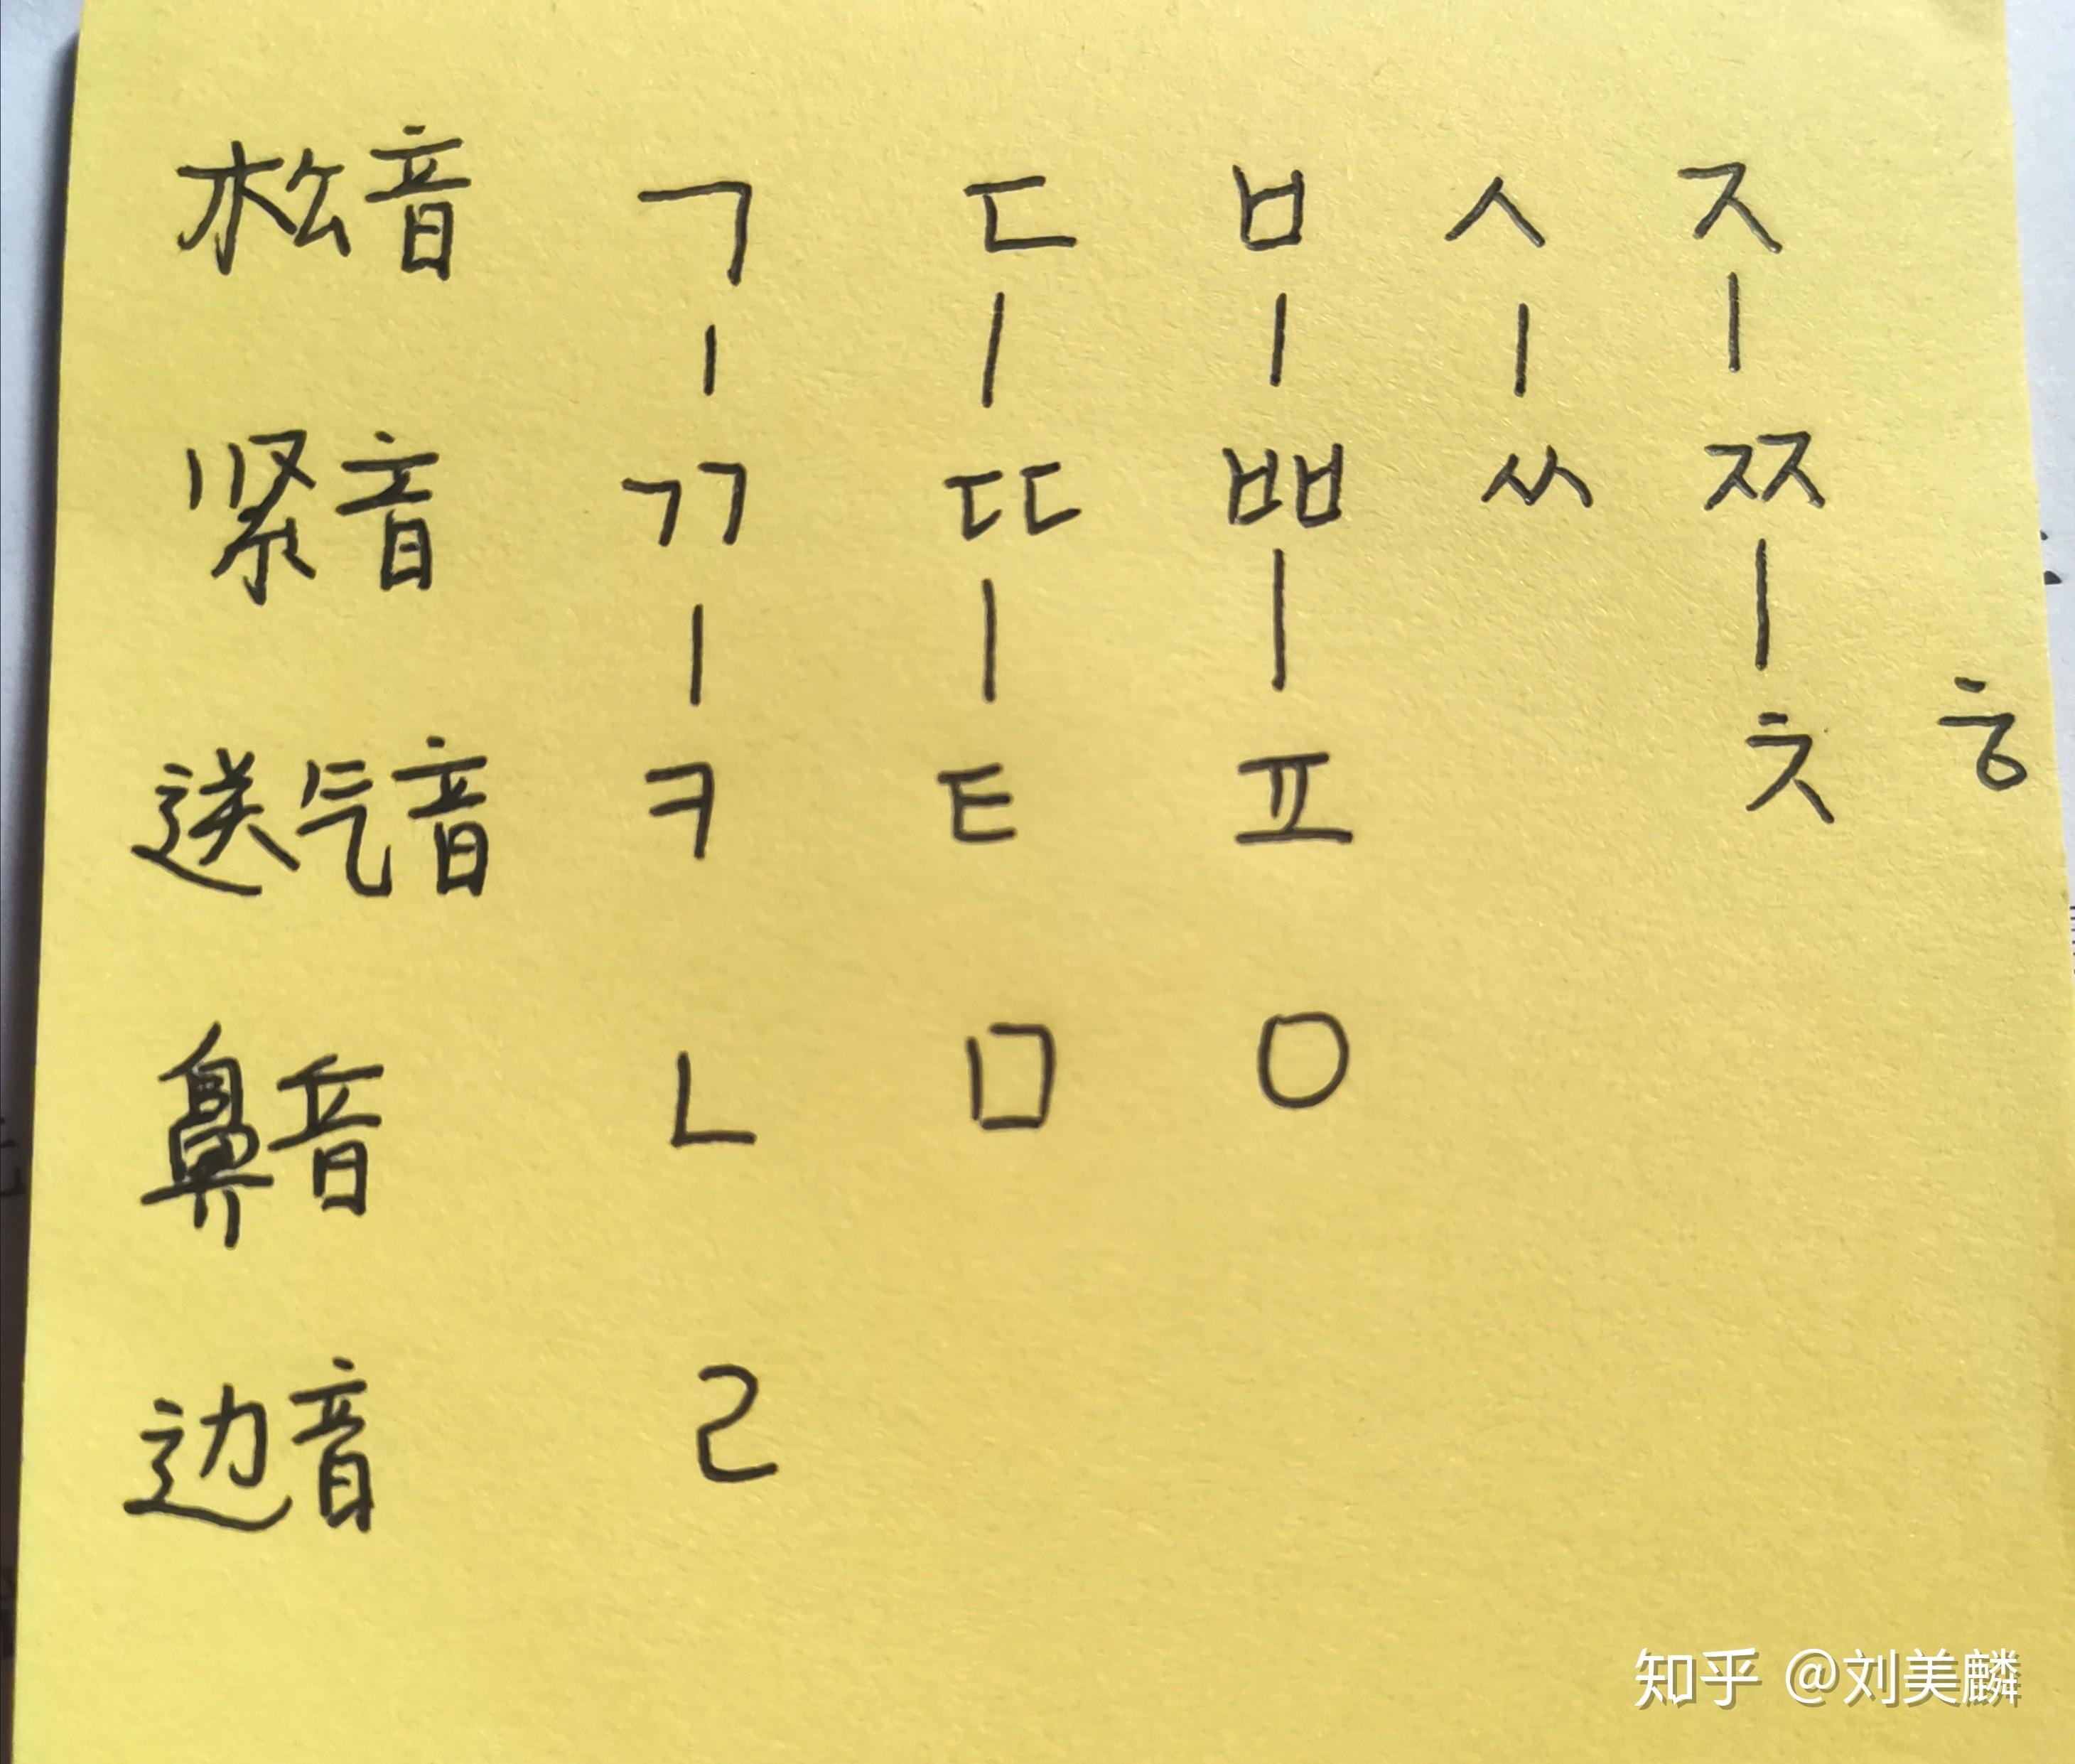 松音 ㄱ ㄷ ㅂ ㅅ ㅈ
紧音 ㄲ ㄸ ㅃ ㅆ ㅉ
送气音 ㅋ ㅌ ㅍ ㅊ ㅎ
鼻音 ㄴ ㅁ ㅇ
边音 ㄹ
知乎 @刘美麟